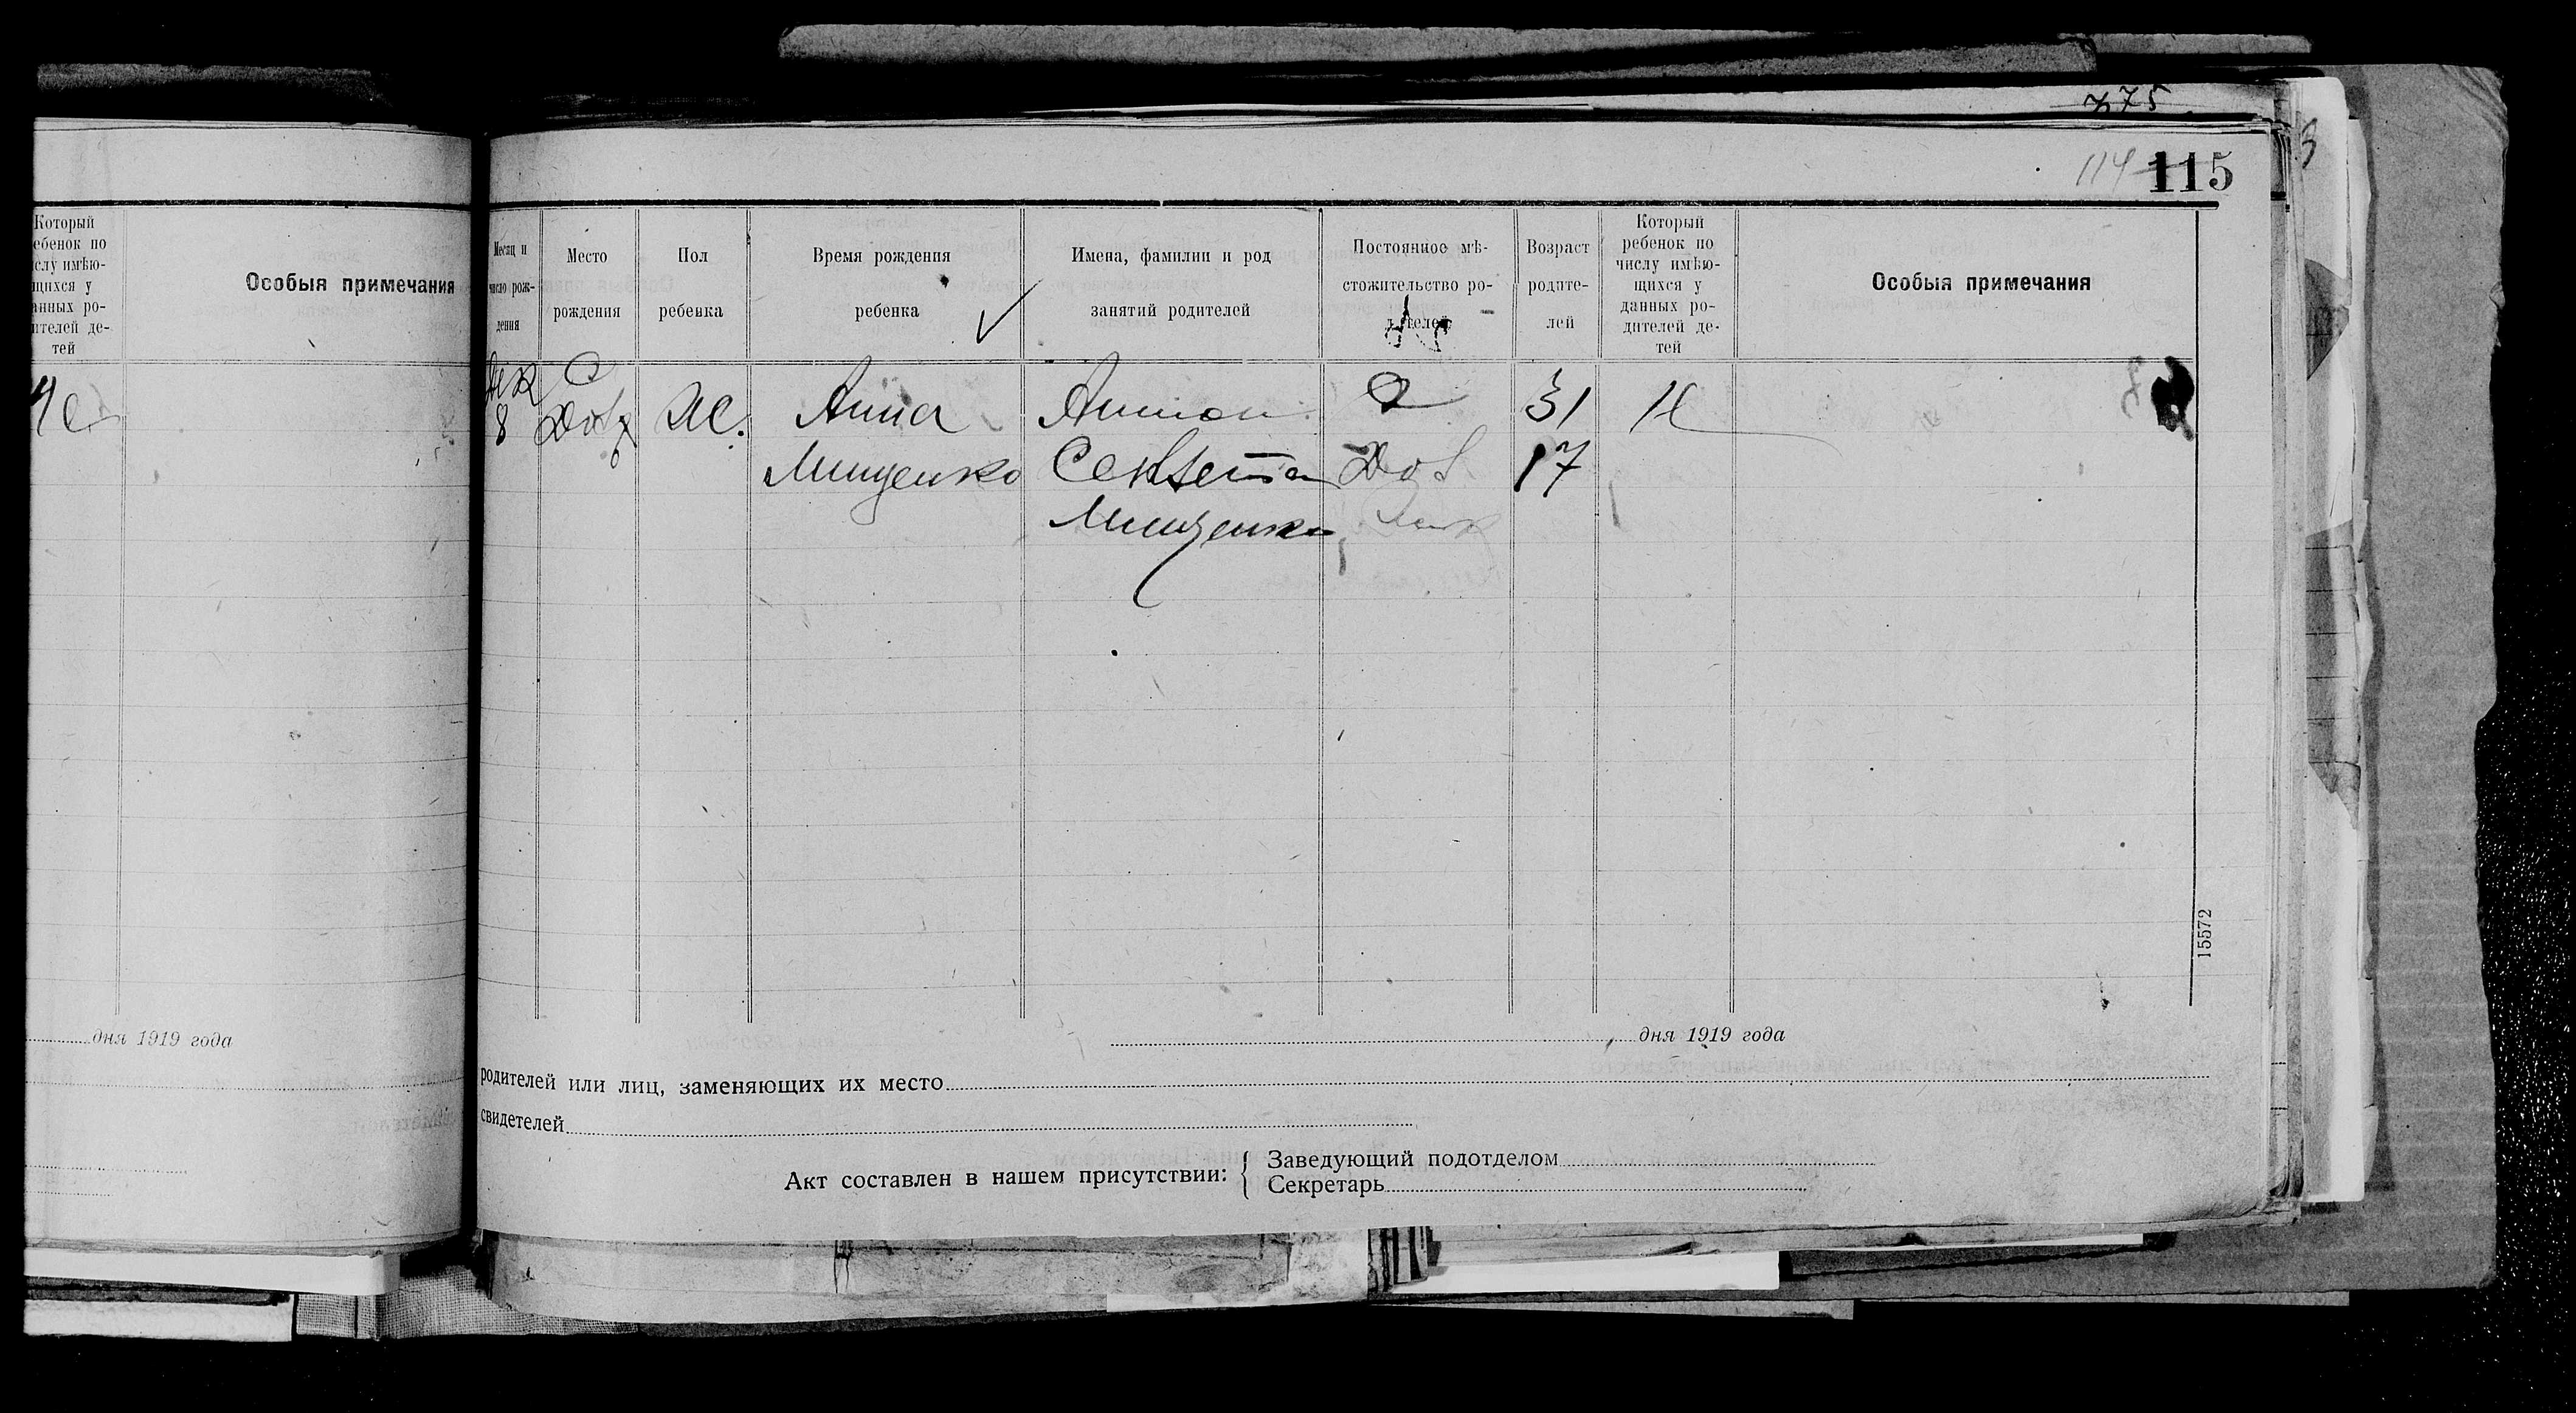 275
114 115
Который
ебенок по
слу имѣю-
щихся у
анных ро-
ителей де-
тей
Особыя примечания
Месяц и
число рож-
дения
Место
рождения
Пол
ребенка
Время рождения
ребенка
Имена, фамилии и род
занятий родителей
Постоянное мѣ-
стожительство ро-
дителей
Возраст
родите-
лей
Который
ребенок по
числу имѣю-
щихся у
данных ро-
дителей де-
тей
Особыя примечания
Дек
8
С
ж.
Анна
Мищенко
Антон
Мищенко
31
17
15572
дня 1919 года
дня 1919 года
родителей или лиц, заменяющих их место
свидетелей
Акт составлен в нашем присутствии:
Заведующий подотделом
Секретарь